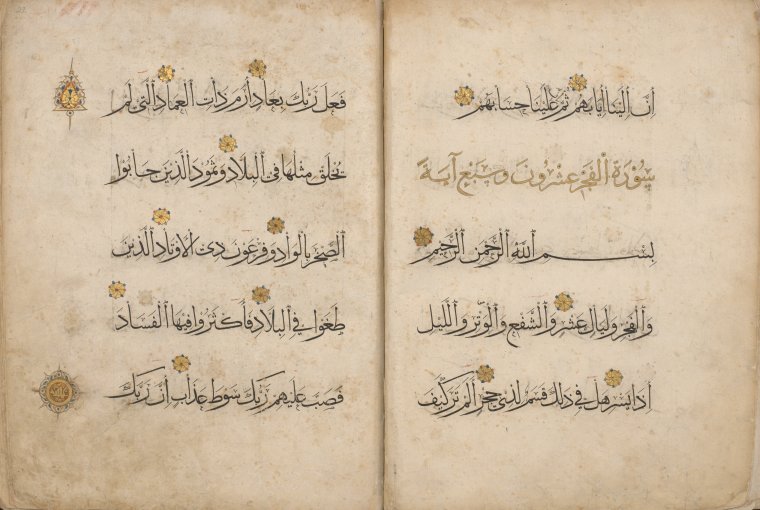 ان الينا ايابهم ثم ان علينا حسابهم
سورة الفجر عشرون وسبع آية
بسم الله الرحمن الرحيم
والفجر وليال عشر والشفع والوتر والليل
اذا يسر هل في ذلك قسم لذي حجر الم تر كيف
فعل ربك بعاد ارم ذات العماد التي لم
يخلق مثلها في البلاد وثمود الذين جابوا
الصخر بالواد وفرعون ذي الاوتاد الذين
طغوا في البلاد فاكثروا فيها الفساد
فصب عليهم ربك سوط عذاب ان ربك